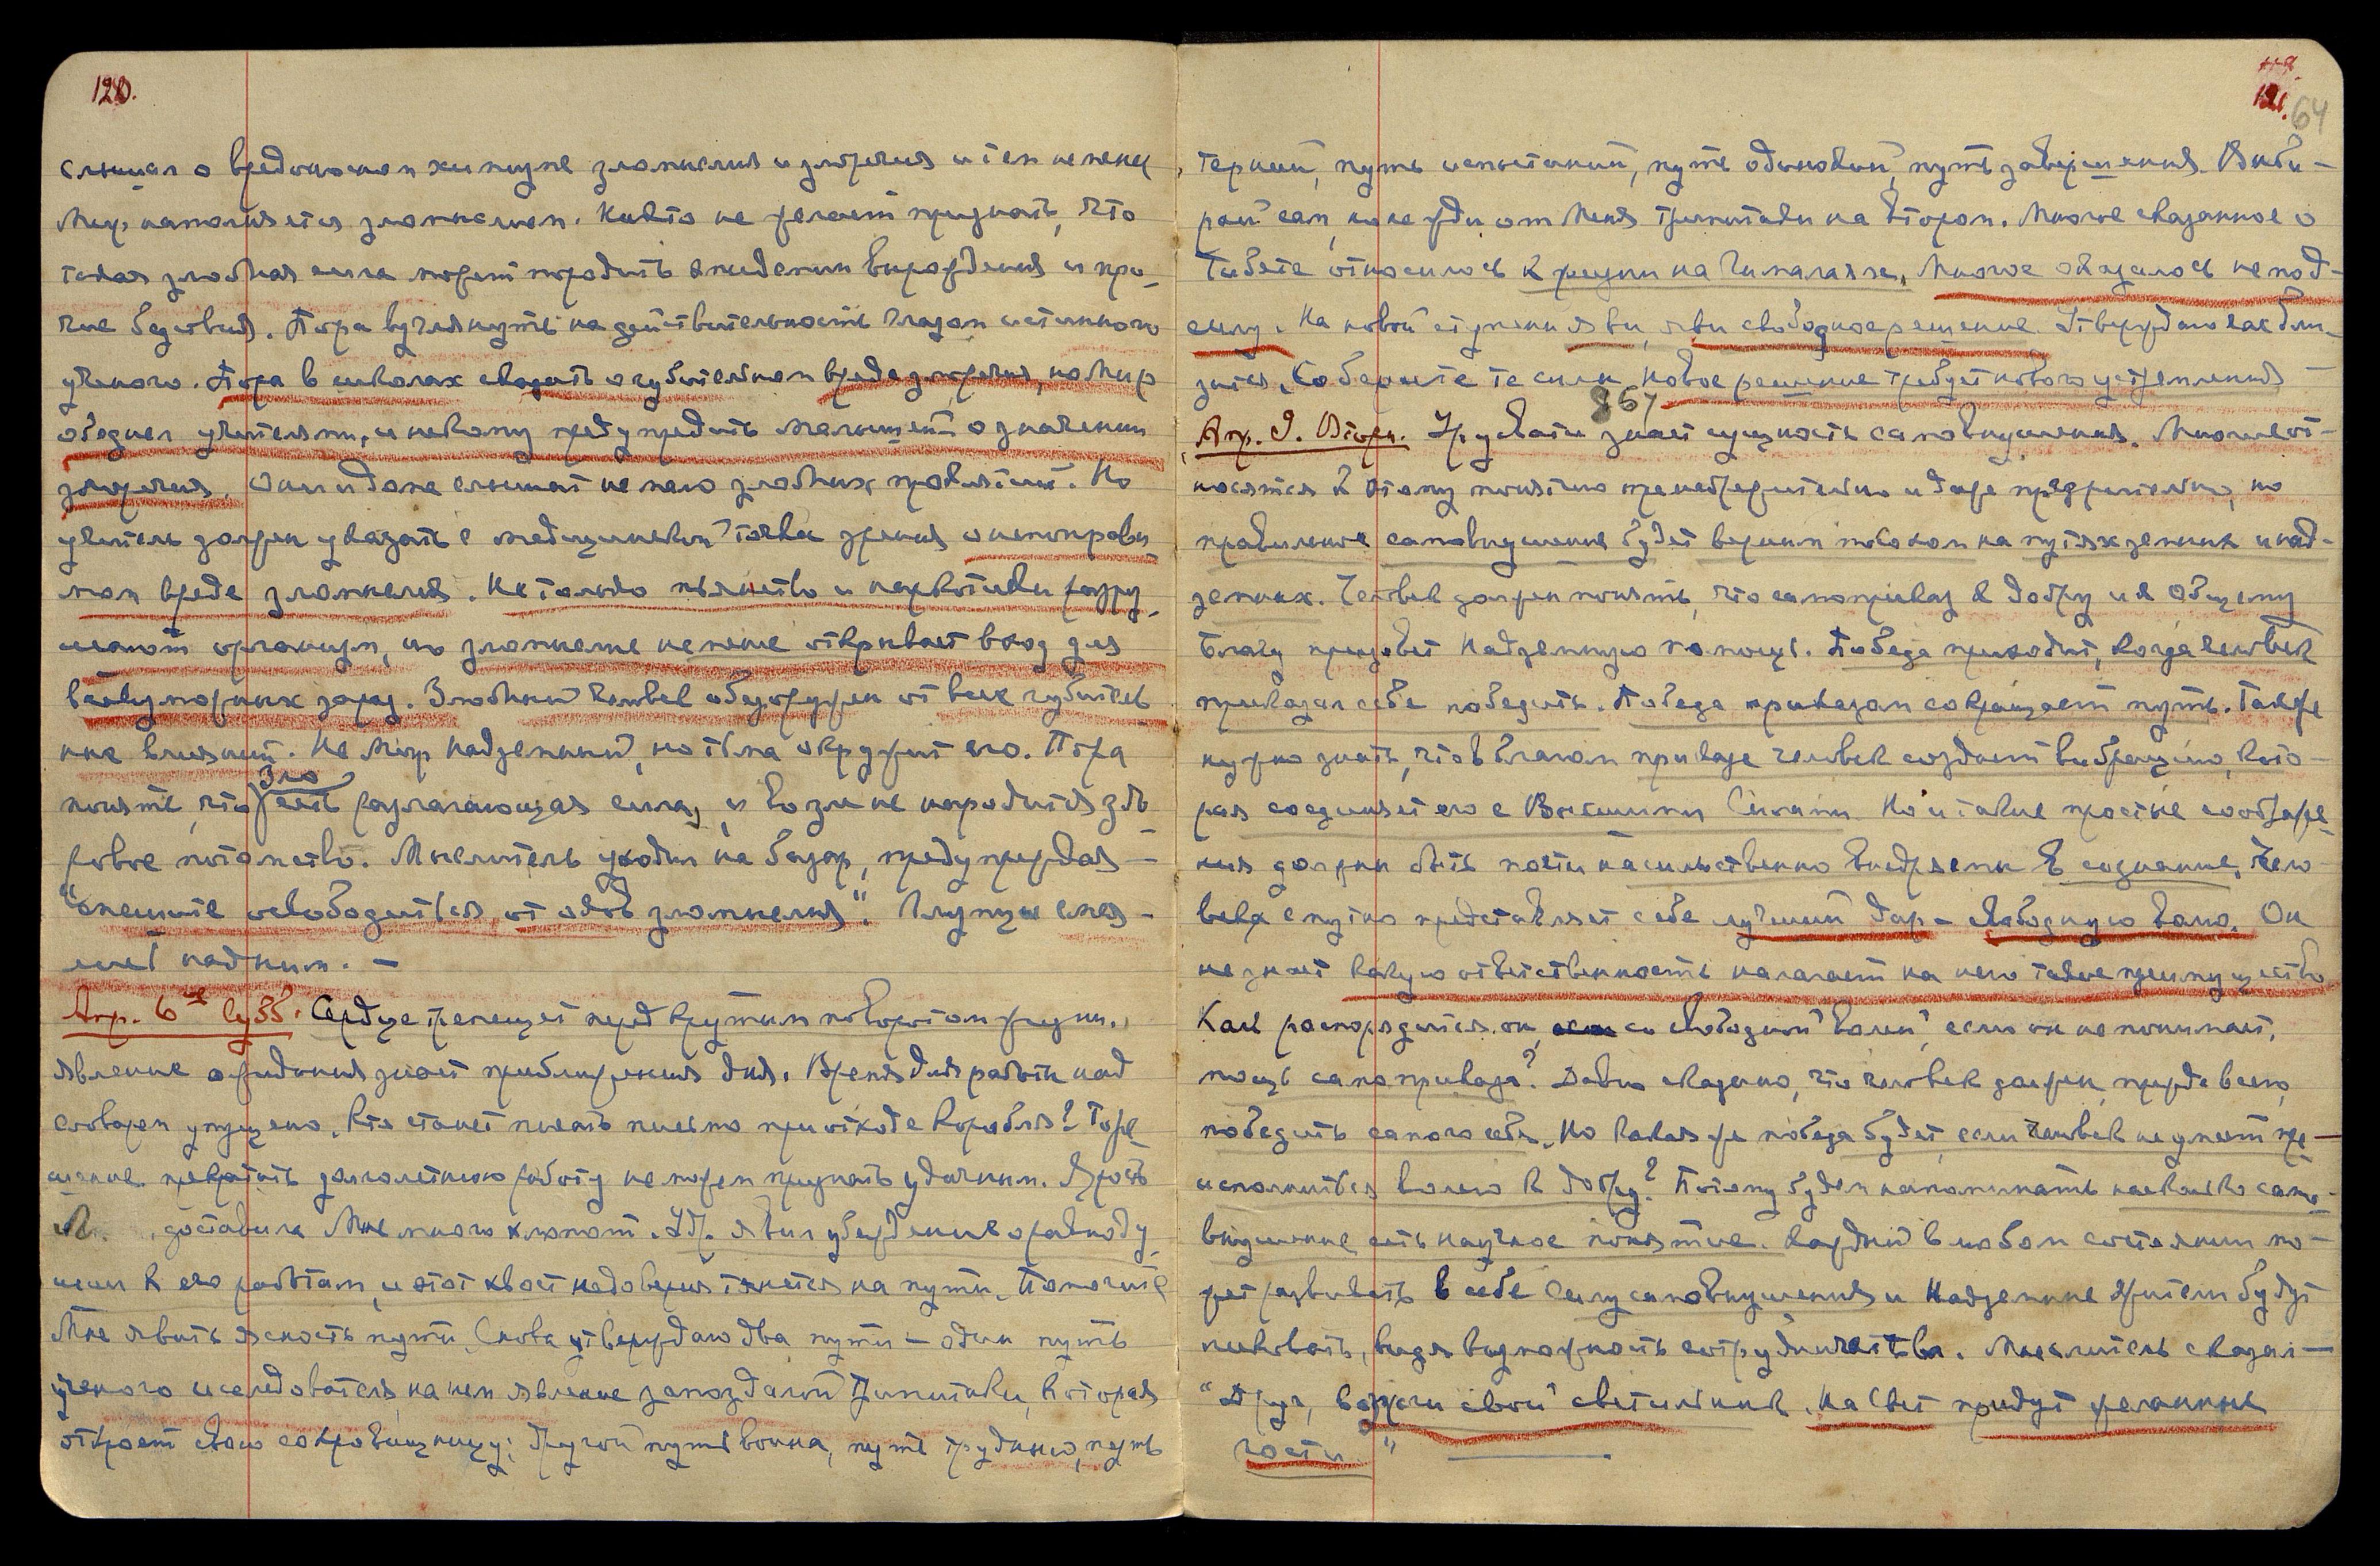 120.
слышал о вредоносном химизме зломыслия и злоречия и тем не менее
Мир наполняется зломыслием. Никто не желает признать, что
такая злобная сила может породить эпидемии вырождения и про-
чие бедствия. Пора взглянуть на действительность глазом истинного
ученого. Пора в школах сказать о губительном вреде злоречия, но Мир
обеднел учителями, и некому предупредить малышей о значении
злоречия. Они и дома слышат не мало злобных проклятий. Но
учитель должен указать с медицинской точки зрения о непоправи-
мом вреде зломыслия. Не только пьянство и наркотики разру-
шают организм, но зломыслие не менее открывает вход для
всевозможных зараз. Злобный человек обезоружен от всех губитель
ных влияний. Не Мир Надземный, но тьма окружит его. Пора
понять, что Зло есть разлагающая сила, и во зле не народится здо-
ровое потомство. Мыслитель уходил на базар, предупреждая —
"спешите освободиться от ядов зломыслия". Глупцы смея-
лись над ним. —
Апр. 6ое Субб. Сердце трепещет перед крутым поворотом жизни.
явление ожидания знает приближения дня. Время для работы над
словарем упущено. Кто станет писать письмо при отходе корабля?
шение прекратить долголетнюю работу не можем признать удачным. Ярость
доставила Мне много хлопот. Ур. явил убеждение о равноду
шии к его работам, и этот хвост недоверия тянется на пути. Помогите
Мне явить ясность пути. Снова утверждаю два пути — один путь
ученого исследователя, на нем явление запоздалой Димитавы, которая
откроет свою сокровищницу; другой путь воина, путь трудный, путь
121.
64
терний, путь испытаний, путь одинокий, путь завершения. Выби-
рай сам, но не жди от Меня на втором. Многое сказанное о
Тибете относилось к жизни на Гималаях. Многое оказалось не под-
силу. На новой ступени яви, яви свободное решение. Утверждаю как бли-
зится. Соберите те силы. Новое решение требует нового устремления —
867
Апр. 9. Вторн. Урусвати знает сущность самовнушения. Многие от-
носятся к этому понятию пренебрежительно и даже презрительно, но
правильное самовнушение будет верным посохом на путях земных и над-
земных. Человек должен понять, что самоприказ к добру и к Общему
Благу призовет Надземную помощь. Победа приходит, когда человек
приказал себе победить. Победа приказом сокращает путь. Также
нужно знать, что в благом приказе человек создает вибрацию, кото-
рая соединяет его с Высшими Силами. Но и такие простые соображе-
ния должны быть почти насильственно внедряемы в сознание. Чело-
век смутно представляет себе лучший дар — свободную волю. Он
не знает какую ответственность налагает на него такое преимущество.
Как распорядится он со свободной волей, если он не понимает
мощь самоприказа? Давно сказано, что человек должен, прежде всего,
победить самого себя. Но какая же победа будет, если человек не умеет пре-
исполниться волею к добру? Потому будем напоминать насколько само-
внушение есть научное понятие. Каждый в любом состоянии мо-
жет развивать в себе Силу самовнушения и Надземные Жители будут
ликовать, видя возможность сотрудничества. Мыслитель сказал —
"Друг, возжги свой светильник. На Свет придут желанные
гости"